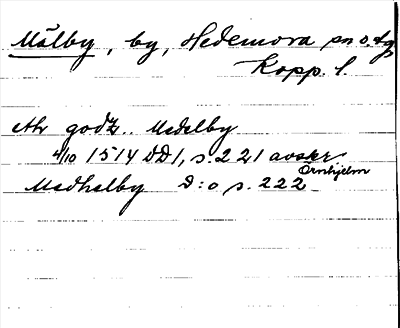 Målby, by, Hedemora sn o. tg
Kopp. l.
Ahr godz.. Medelby
4/10 1514 DD1, s. 221 avskr.
Örnhjelm
Medhelby D:o s. 222